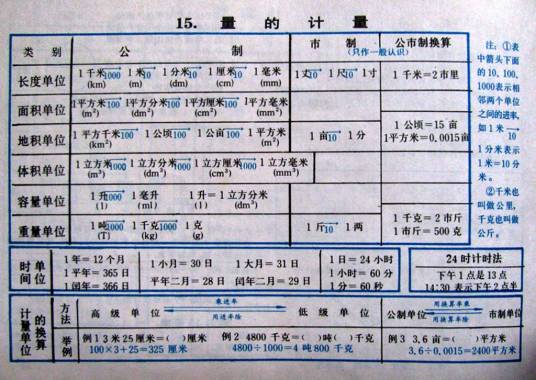 15. 量的计量
类别 公制 市制 (只作一般认识) 公市制换算
长度单位 1千米 1000 1米 10 1分米 10 1厘米 10 1毫米 1丈 10 1尺 10 1寸 1千米=2市里
(km) (m) (dm) (cm) (mm)
面积单位 1平方米 100 1平方分米 100 1平方厘米 100 1平方毫米
(m²) (dm²) (cm²) (mm²)
地积单位 1平方千米 100 1公顷 100 1公亩 100 1平方米 1亩 10 1分 1公顷=15亩
(km²) (m²) 1平方米=0.0015亩
体积单位 1立方米 1000 1立方分米 1000 1立方厘米 1000 1立方毫米
(m³) (dm³) (cm³) (mm³)
容量单位 1升 1000 1毫升 1升=1立方分米
(l) (ml) (l) (dm³)
重量单位 1吨 1000 1千克 1000 1克 1斤 10 1两 1千克=2市斤
(T) (kg) (g) 1市斤=500克
注:①表
中箭头下面
的10、100、
1000表示相
邻两个单位
之间的进率,
如1米→
10
1分米表示
1米=10分
米。
②千米也
叫做公里,
千克也叫做
公斤。
时间单位
1年=12个月
1平年=365日
1闰年=366日
1小月=30日 1大月=31日
平年二月=28日 闰年二月=29日
1日=24小时
1小时=60分
1分=60秒
24时计时法
下午1点是13点
14:30表示下午2点半
计量单位的换算
方法 高级单位 乘进率 用进率除 低级单位 公制单位 用换算率乘 用换算率除 市制单位
举例 例1 3米25厘米=( )厘米 例2 4800千克=( )吨( )千克 例3 3.6亩=( )平方米
100×3+25=325厘米 4800÷1000=4吨800千克 3.6÷0.0015=2400平方米